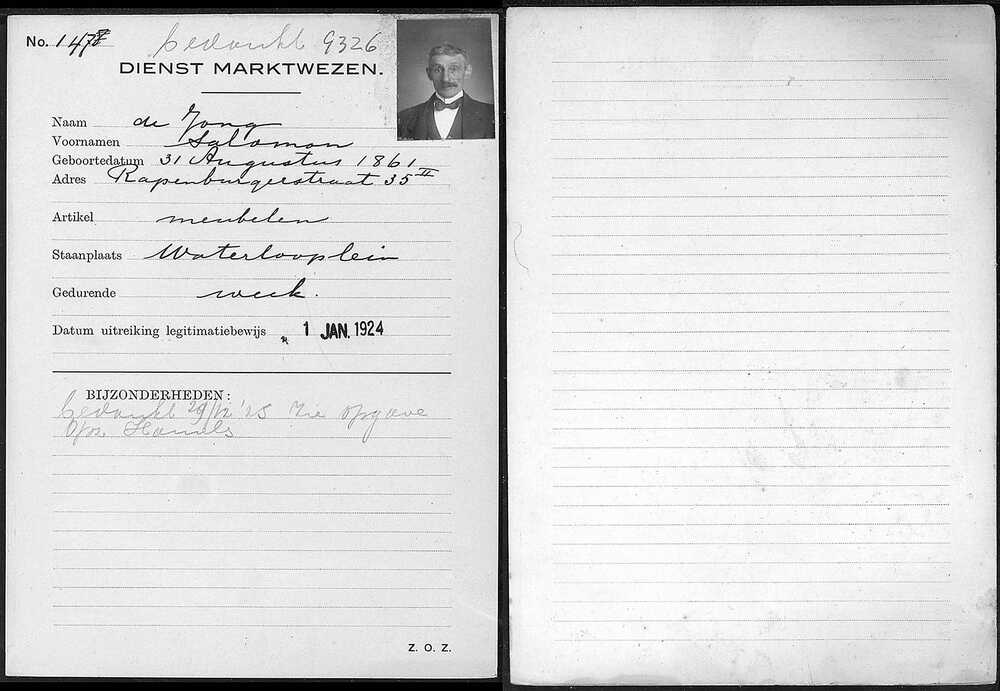 No. 1478 bedankt 9326
DIENST MARKTWEZEN.
Naam de Jong
Voornamen Salomon
Geboortedatum 31 Augustus 1861
Adres Rapenburgerstraat 35 II
Artikel meubelen
Staanplaats Waterlooplein
Gedurende week.
Datum uitreiking legitimatiebewijs 1 JAN. 1924
BIJZONDERHEDEN:
bedankt 29/12 '25 zie opgave
Opz.
Z. O. Z.